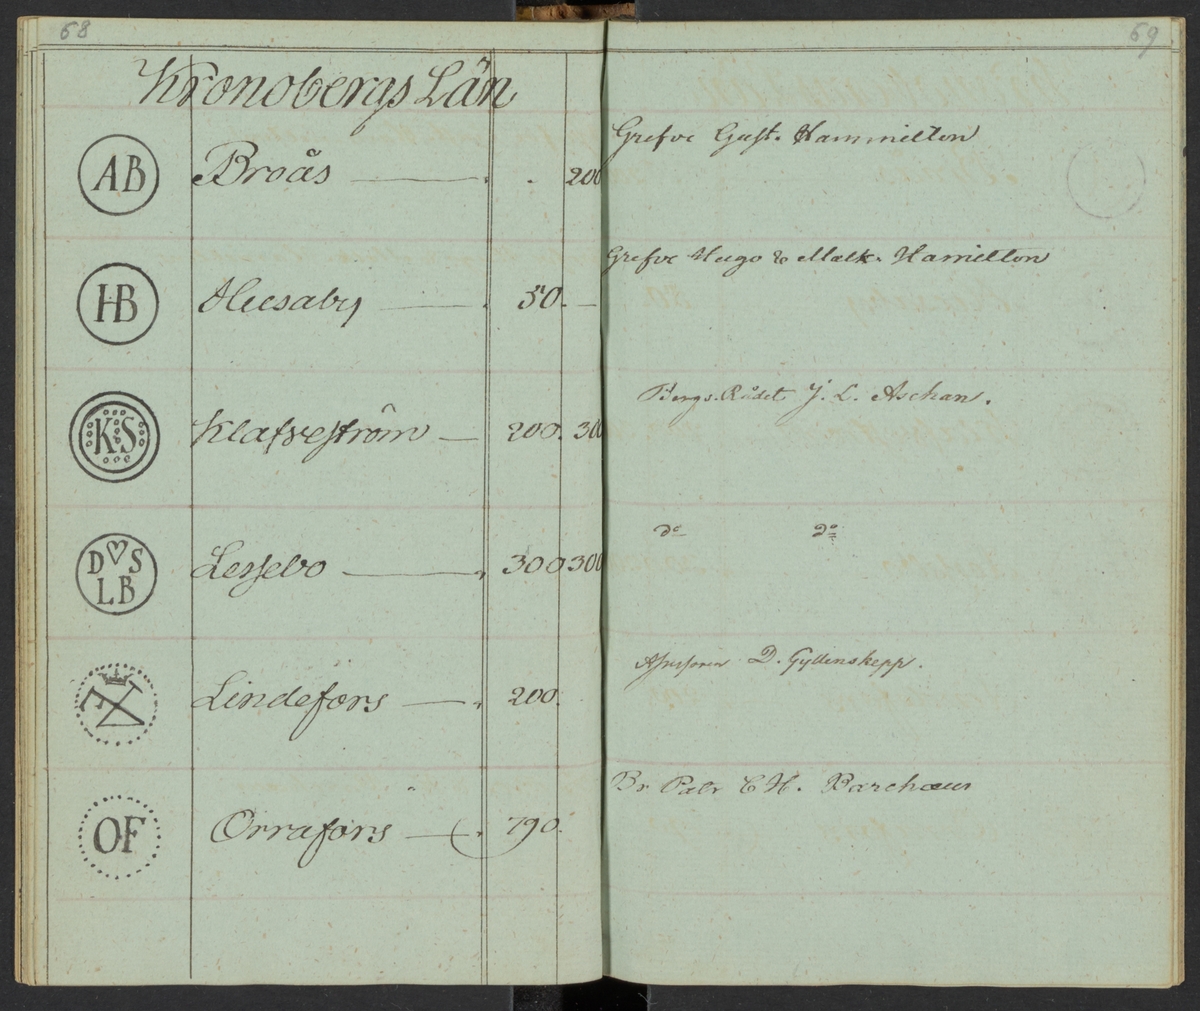 68
Kronobergs Län
AB Broås . . 200
HB Huseaby . 50. —
KS Klafreström — 200. 300
DS LB Lessebo . 300 300
Lindefors — . 200.
OF Orrafors — . 790.
69
Grefve Gust. Hammilton
Grefve Hugo & Malk. Hamilton
Bergs-Rådet J. L. Aschan.
do do
D. Gyllenskepp.
Br Patr C H. Barchæus